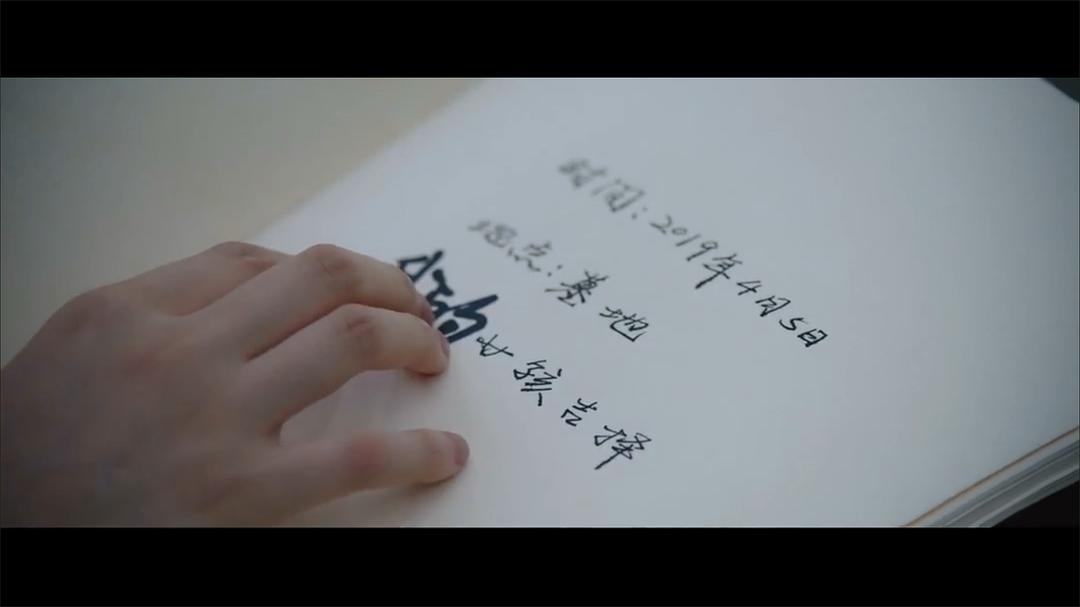 时间：2019年4月5日
地点：基地
女孩吉择